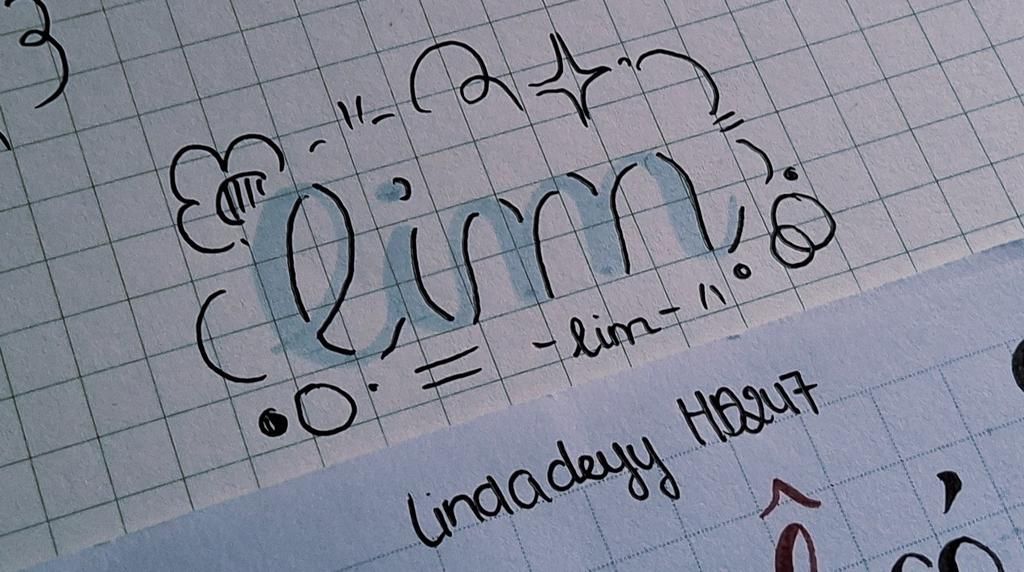 lim
-lim-
lindadeyy HB247